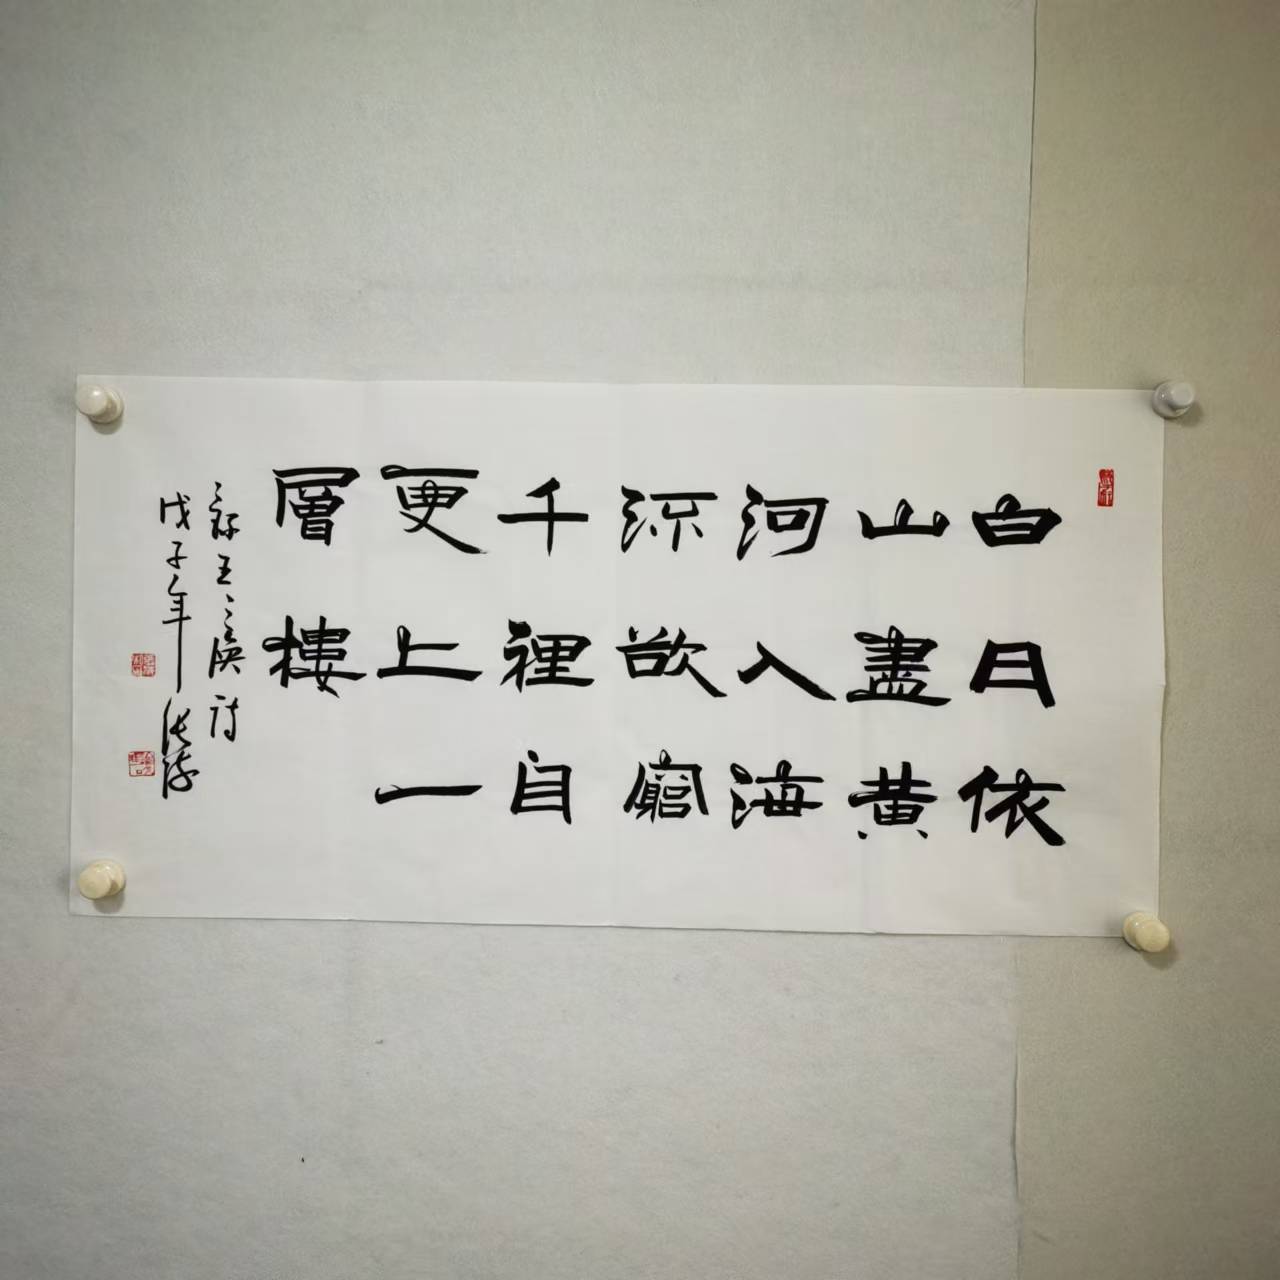 白日依
山盡黃
河入海
流欲窮
千裡自
更上一
層樓
録王之渙詩
戊子年